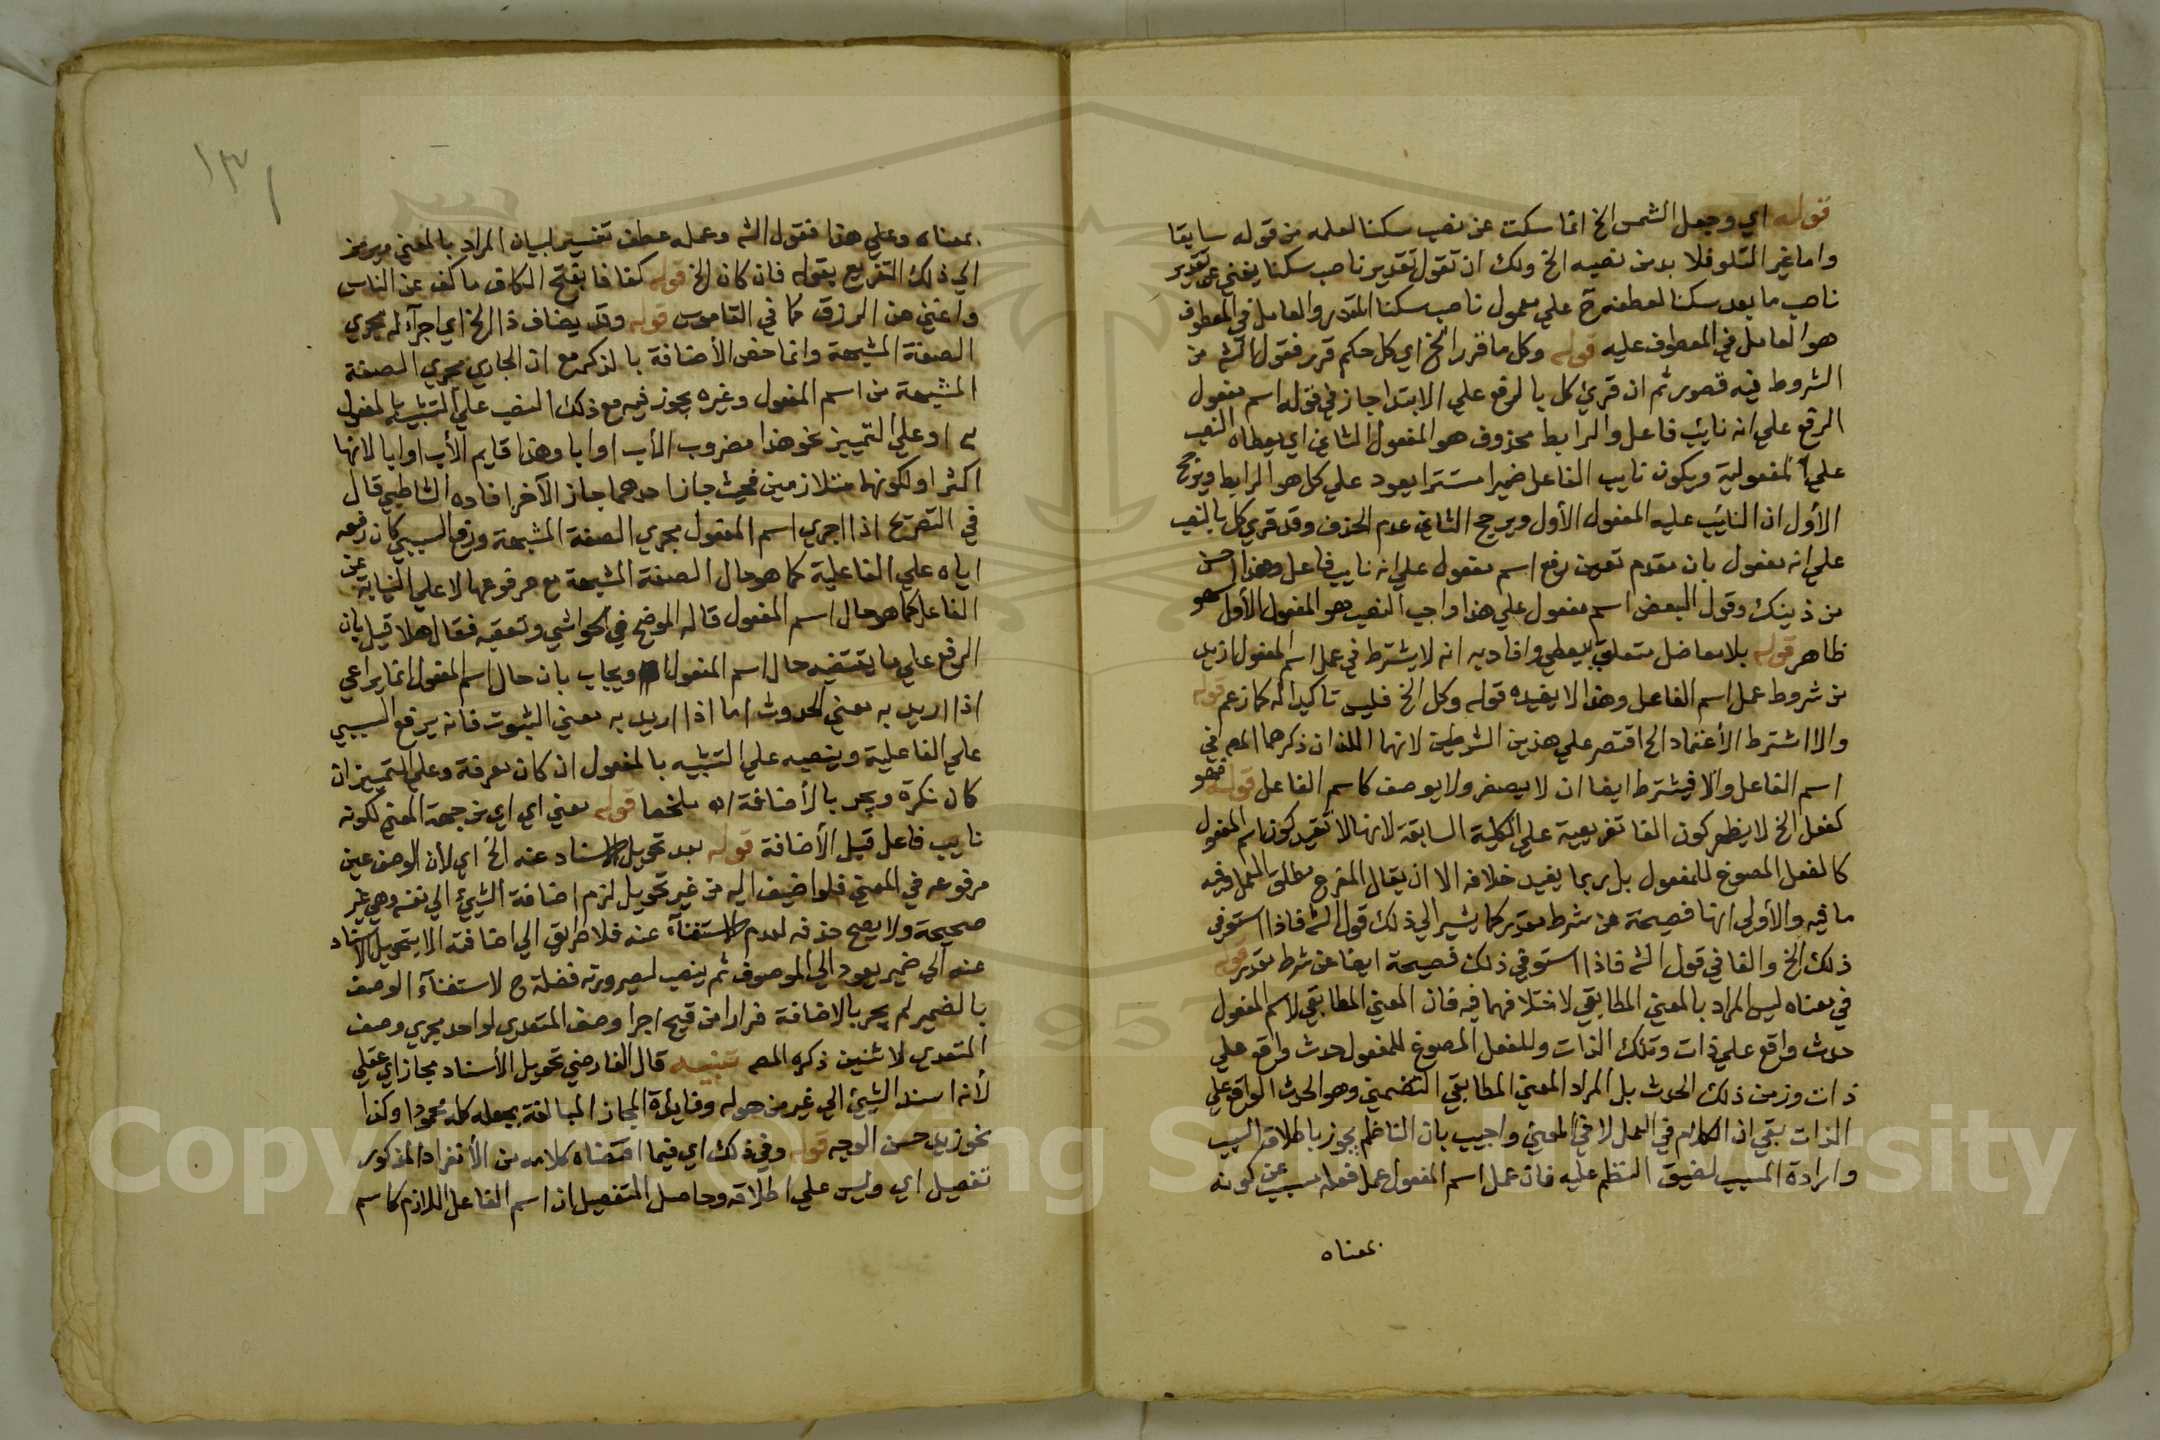 قوله اي وجعل الشمس الخ انما سكت عن نصب سكنا لعلمه من قوله سابقا
واما غير التلو فلا بد من نصبه الخ ولك ان تقول تقدير ناصب سكنا يغني عن تقدير
ناصب ما بعد سكنا لعطفه ح علي معمول ناصب سكنا المقدر والعامل في المعطوف
هو العامل في المعطوف عليه قوله وكل ما قرر الخ اي كل حكم قرر فقول الشه من
الشروط فيه قصور ثم ان قري كل بالرفع علي الابتدا جاز في قوله اسم مفعول
الرفع علي انه نائب فاعل والرابط محذوف هو المفعول الثاني اي يعطاه النصب
علي المفعولية ويكون نايب الفاعل ضميرا مستترا يعود علي كل هو الرابط ويرجح
الأول ان النائب عليه المفعول الأول ويرجح الثاني عدم الحذف وقد قري كل بالنصب
علي انه مفعول بان مقدم تعين رفع اسم مفعول علي انه نايب فاعل وهذا احسن
من ذينك وقول البعض اسم مفعول علي هذا واجب النصب هو المفعول الأول سهو
ظاهر قوله بلا تفاضل متعلق بيعطي وافاد به انه لا يشترط في عمل اسم المفعول ازيد
من شروط عمل اسم الفاعل وهذا لا يفيده قوله وكل الخ فليس تاكيدا له كما زعم قوله
والا اشترط الأعتماد الخ اقتصر علي هذين الشرطين لانهما اللذان ذكرهما المصه في
اسم الفاعل والا فيشترط ايضا ان لا يصغر ولا يوصف كاسم الفاعل قوله فهو
كفعل الخ لا يظهر كون الفا تفريعية علي الكلية السابقة لانها لا تفيد كون اسم المفعول
كالفعل المصوغ للمفعول بل ربما يفيد خلافه الا ان يقال المفرع مطلق العمل وفيه
ما فيه والأولى انها فصيحة عن شرط مقدر كما يشير الي ذلك قول الشه فاذا استوفي
ذلك الخ والفا في قول الشه فاذا استوفي ذلك فصيحة ايضا عن شرط مقدر قوله
في معناه ليس المراد بالمعني المطابقي لاختلافهما فيه فان المعني المطابقي لاسم المفعول
حدث واقع علي ذات وتلك الذات وللفعل المصوغ للمفعول حدث واقع علي
ذات وزمن ذلك الحدث بل المراد المعني المطابقي التضمني وهو الحدث الواقع علي
الذات بقي ان الكلام في العمل لا في المعني واجيب بان الناظم يجوز باطلاق السبب
وارادة المسبب لضيق النظم عليه فان عمل اسم المفعول عمل فعله مسبب عن كونه
بمعناه
١٣١
بمعناه وعلي هذا فقول الشه وعمله عطف تفسير لبيان المراد بالمعني ويرمز
الي ذلك التفريع بقوله فان كان الخ قوله كفافا بفتح الكاف ما كف عن الناس
واغني من الرزق كما في القاموس قوله وقد يضاف ذا الخ اي اجرآء له مجري
الصفة المشبهة وانما خص الأضافة بالذكر مع ان الجاري مجري الصفة
المشبهة من اسم المفعول وغيره يجوز فيه مع ذلك النصب علي التشبيه بالمفعول
به او علي التمييز نحو هذا مضروب الأب او ابا وهذا قايم الأب او ابا لانها
اكثر او لكونهما متلازمين فحيث جاز احدهما جاز الآخر افاده الشاطبي قال
في التصريح اذا اجري اسم المفعول مجري الصفة المشبهة ورفع السببي كان رفعه
اياه علي الفاعلية كما هو حال الصفة المشبهة مع مرفوعها لا علي النيابة عن
الفاعل كما هو حال اسم المفعول قاله الموضح في الحواشي وتعقبه فقال هلا قيل بان
الرفع علي ما يقتضيه حال اسم المفعول ويجاب بان حال اسم المفعول انما يراعي
اذا اريد به معني الحدوث اما اذا اريد به معني الثبوت فانه يرفع السببي
علي الفاعلية وينصبه علي التشبيه بالمفعول ان كان معرفة وعلي التمييز ان
كان نكرة ويجر بالأضافة اه ملخصا قوله معني اي اي من جهة المعني لكونه
نايب فاعل قبل الأضافة قوله بعد تحويل الاسناد عنه الخ اي لأن الوصف عين
مرفوعه في المعني فلو اضيف اليه من غير تحويل لزم اضافة الشيئ الي نفسه وهي غير
صحيحة ولا يصح حذفه لعدم الاستغنآء عنه فلا طريق الي اضافته الا بتحويل الاسناد
عنه الي ضمير يعود الي الموصوف ثم ينصب لصيرورته فضلة ح لاستغنآء الوصف
بالضمير ثم يجر بالاضافة فرارا من قبح اجرا وصف المتعدي لواحد مجري وصف
المتعدي لاثنين ذكره المصه تنبيه قال الفارضي تحويل الأسناد مجاز اي عقلي
لأنه اسند الشيئ الي غير من هو له وفايدة المجاز المبالغة بجعله كله محمودا وكذا
نحو زيد حسن الوجه قوله وفي ذلك اي فيما اقتضاه كلامه من الأنفراد المذكور
تفصيل اي وليس علي اطلاقه وحاصل التفصيل ان اسم الفاعل اللازم كاسم
Copyright © King Saud University
1957